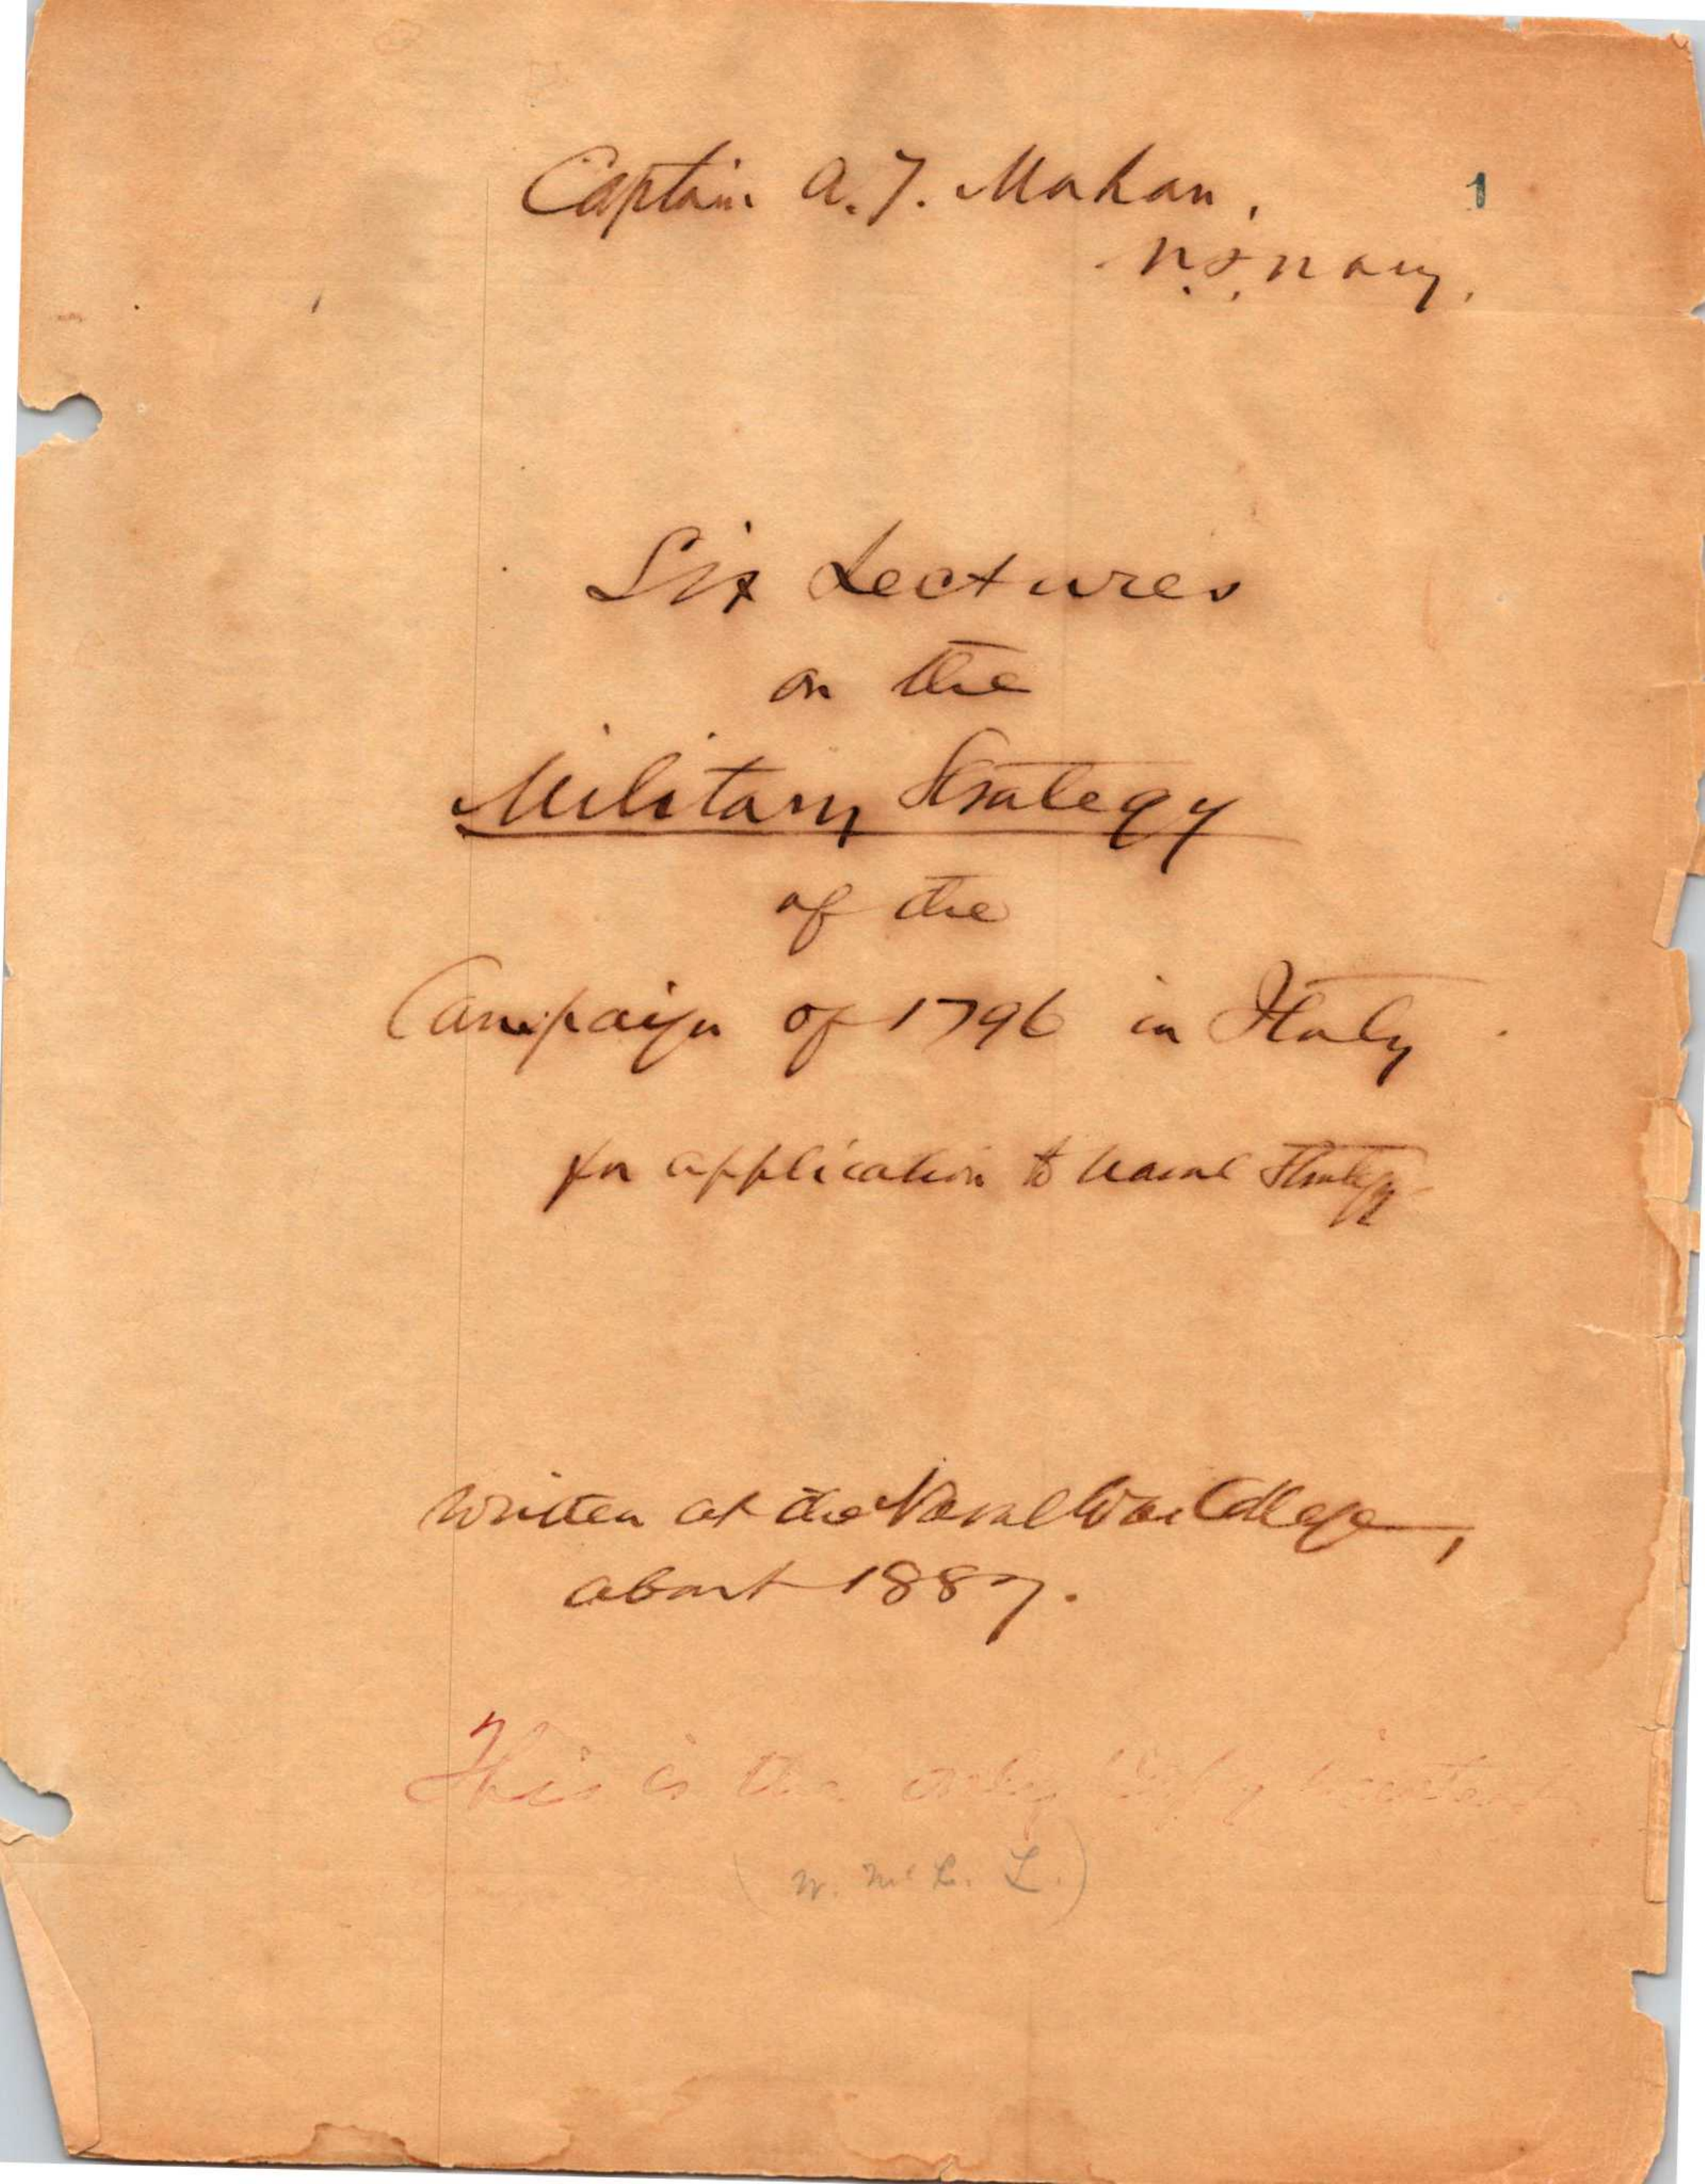 Captain A. T. Mahan,
1
U.S. Navy.
Six Lectures
on the
Military Strategy
of the
Campaign of 1796 in Italy.
for application to Naval Strategy
Written at the Naval War College,
about 1887.
This is the only copy
(W. McL. L.)